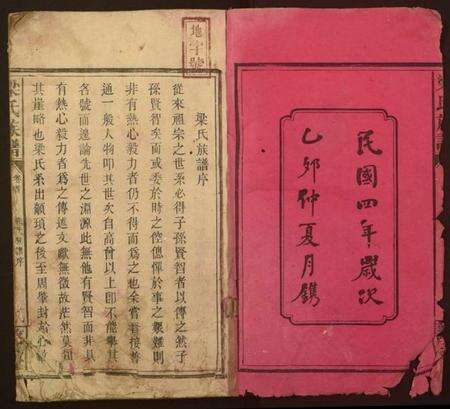 民國四年歲次
乙卯仲夏月鐫
梁氏族譜
地字號
梁氏族譜序
從來祖宗之世系必得子孫賢智者以傳之然子
孫賢智矣而或委於時之倥傯憚於事之艱難則
非有熱心毅力者仍不得而為之也余嘗接普
通一般人物叩其世矣自高曾以上即不能舉其
名號而違論先世之淵源此無他有賢智而非具
有熱心毅力者為之傳述文獻無徵故茫然莫知
其崖略也梁氏系出顓頊之後至周畢封
梁氏族譜